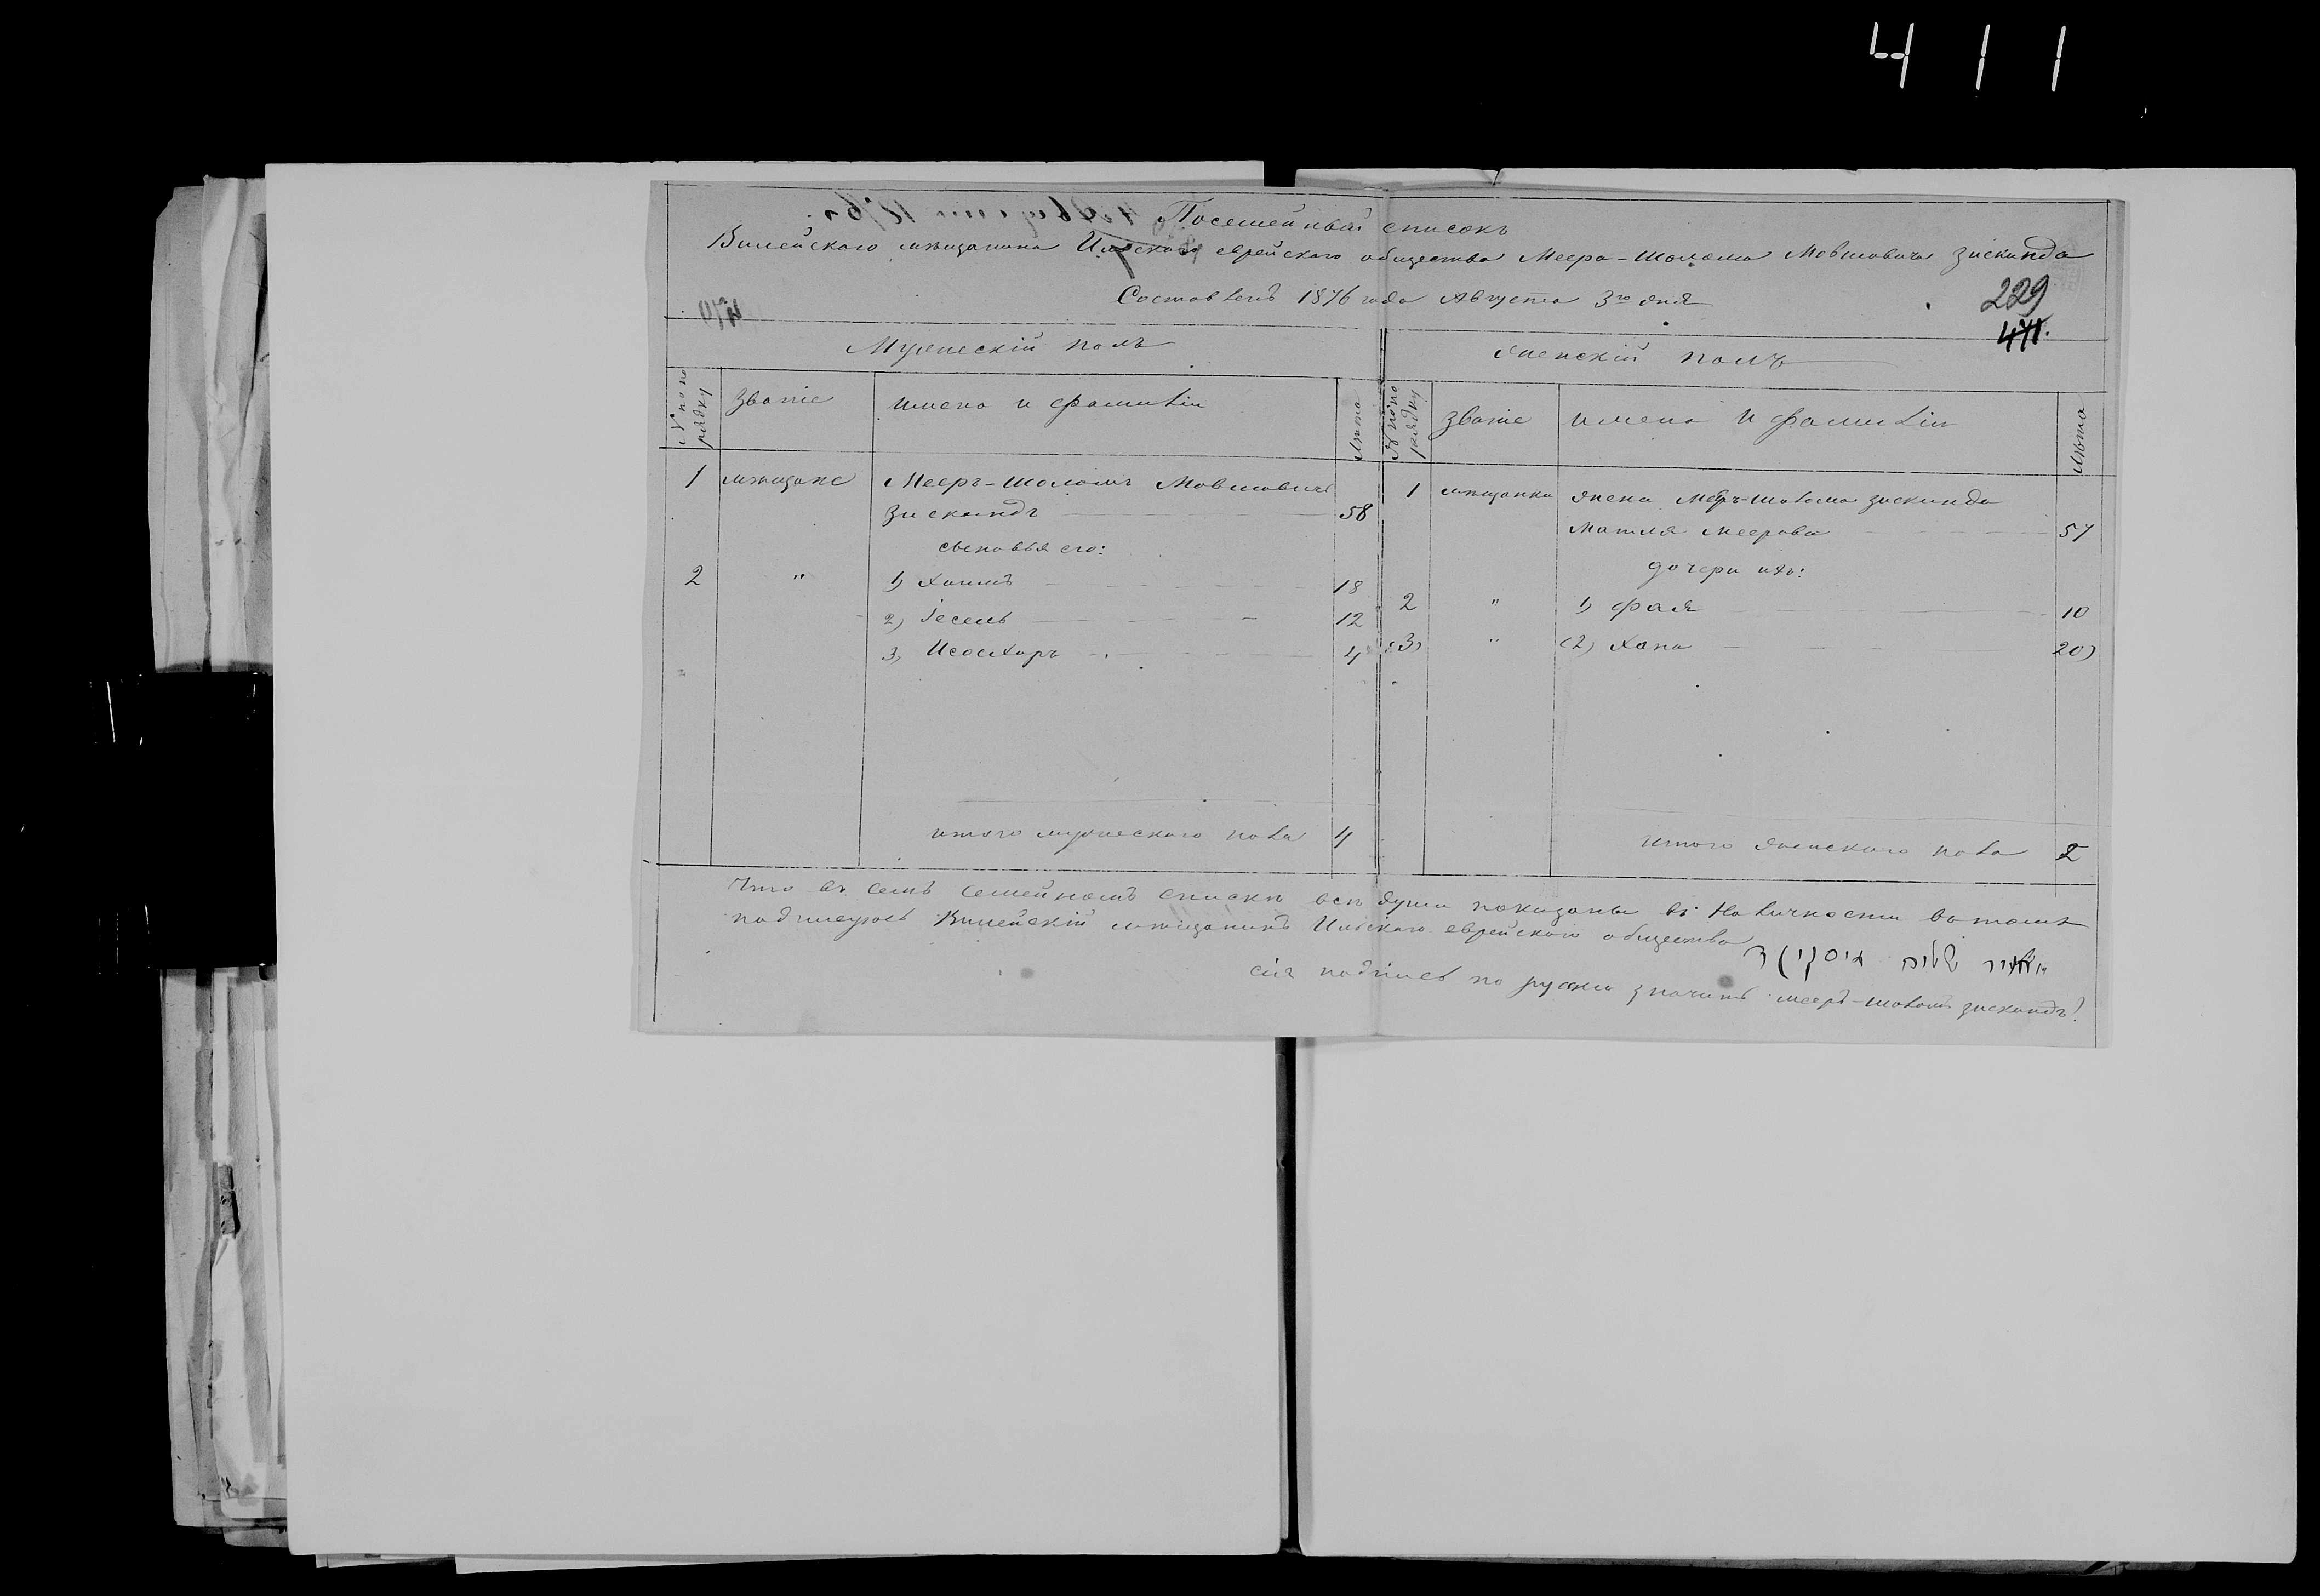 411
Посемейный списокъ
Вилейского мѣщанина Ильского еврейского общества Меера-Шолома Мовшовича Зискинда
Составленъ 1876 года Августа 3го дня
229
471.
Мужескій полъ
Женскій полъ
№ по по рядку
Званіе
имена и фамиліи
Лѣта
№ по по рядку
Званіе
имена и фамиліи
Лѣта
1 мѣщане Мееръ-Шоломъ Мовшовичъ
Зискиндъ 58
сыновья его:
2 " 1) Хаимъ 18
2) Іесель 12
3) Исохаръ 4
1 мѣщанка жена Меръ-Шолома Зискинда
Матля Меерова 57
дочери ихъ:
2 " 1) Фоля 10
(3) " (2) Хана 20)
итого мужескаго пола 4
итого женскаго пола 2
Что въ семъ семейномъ спискѣ всѣ души показаны въ наличности въ томъ
подписуюсь Вилейскій мѣщанинъ Ильского еврейского общества
מאיר שלום זיסקינד
сія подпись по руски значитъ Мееръ-Шоломъ Зискиндъ!